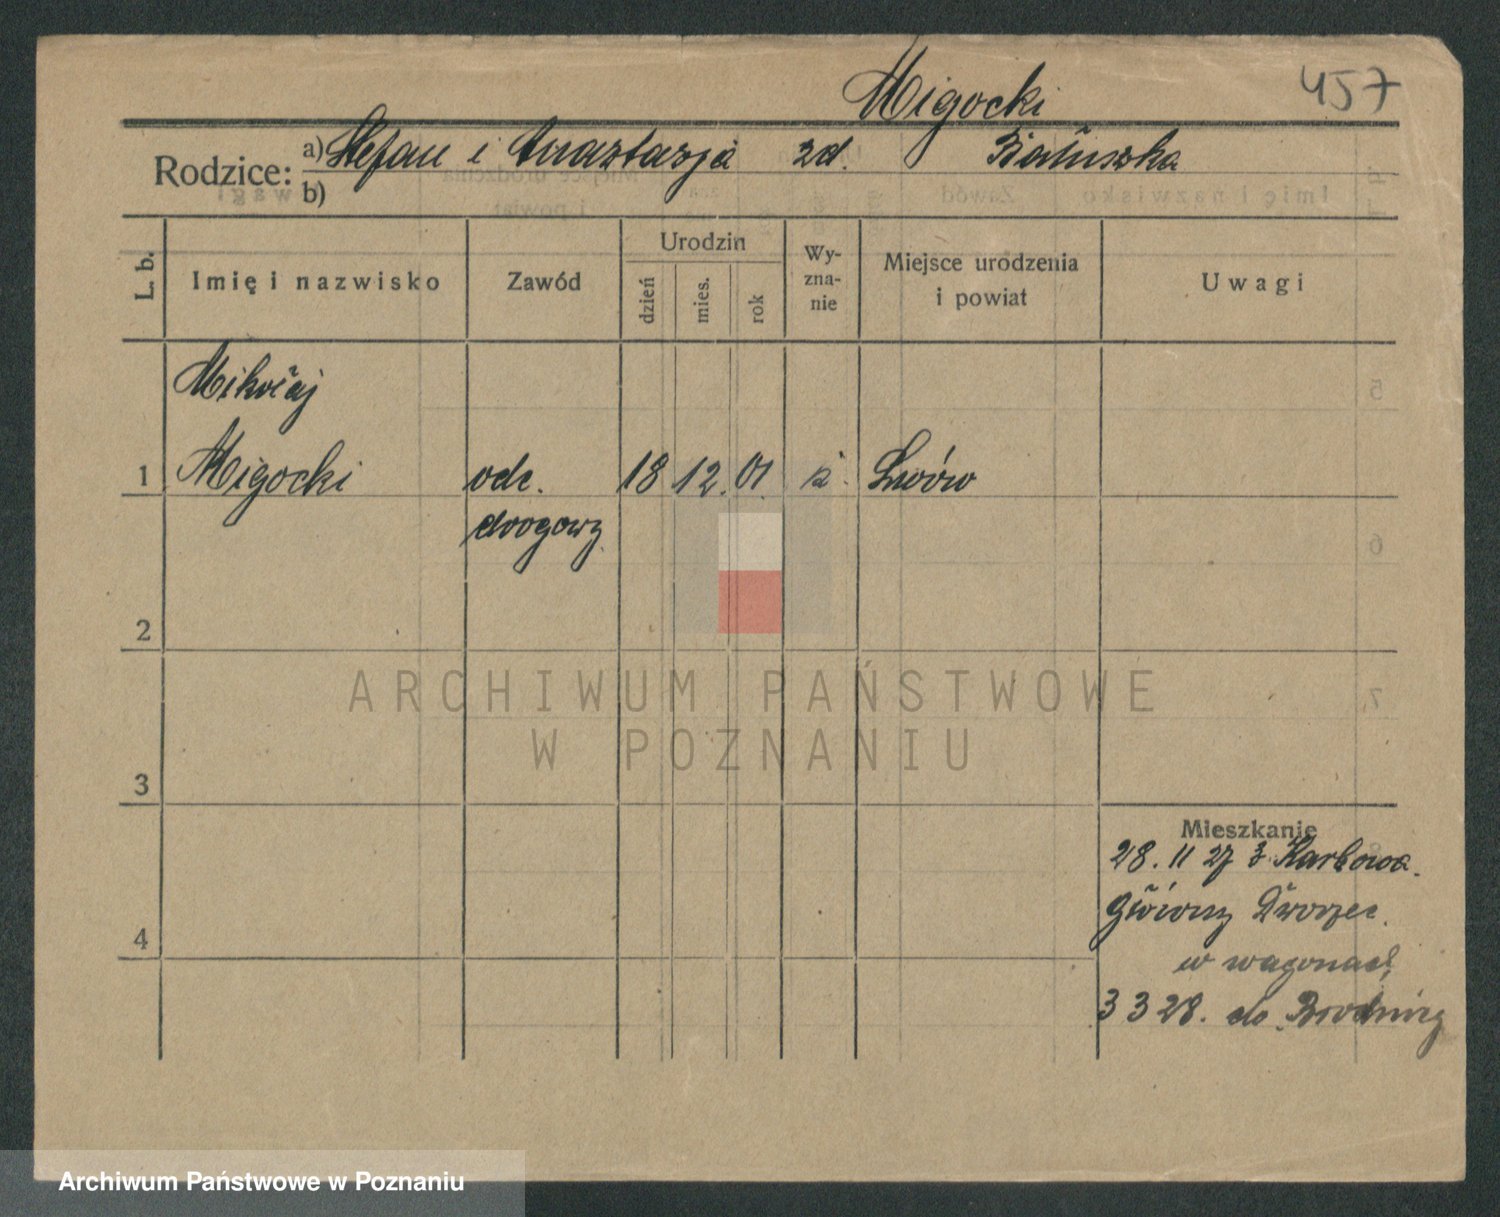 Migocki
457
Rodzice: a) Stefan i Anastazja zd.
b)
L. b.
Imię i nazwisko
Zawód
Urodzin
dzień
mies.
rok
Wy-
zna-
nie
Miejsce urodzenia
i powiat
Uwagi
Mikołaj
1 Migocki odc. 18 12. 01. k. Lwów
drogowy
2
3
4
Mieszkanie
28. 11 27 z Karbowa.
Główny Dworzec.
w wagonach
3 3 28. do
ARCHIWUM PAŃSTWOWE
W POZNANIU
Archiwum Państwowe w Poznaniu